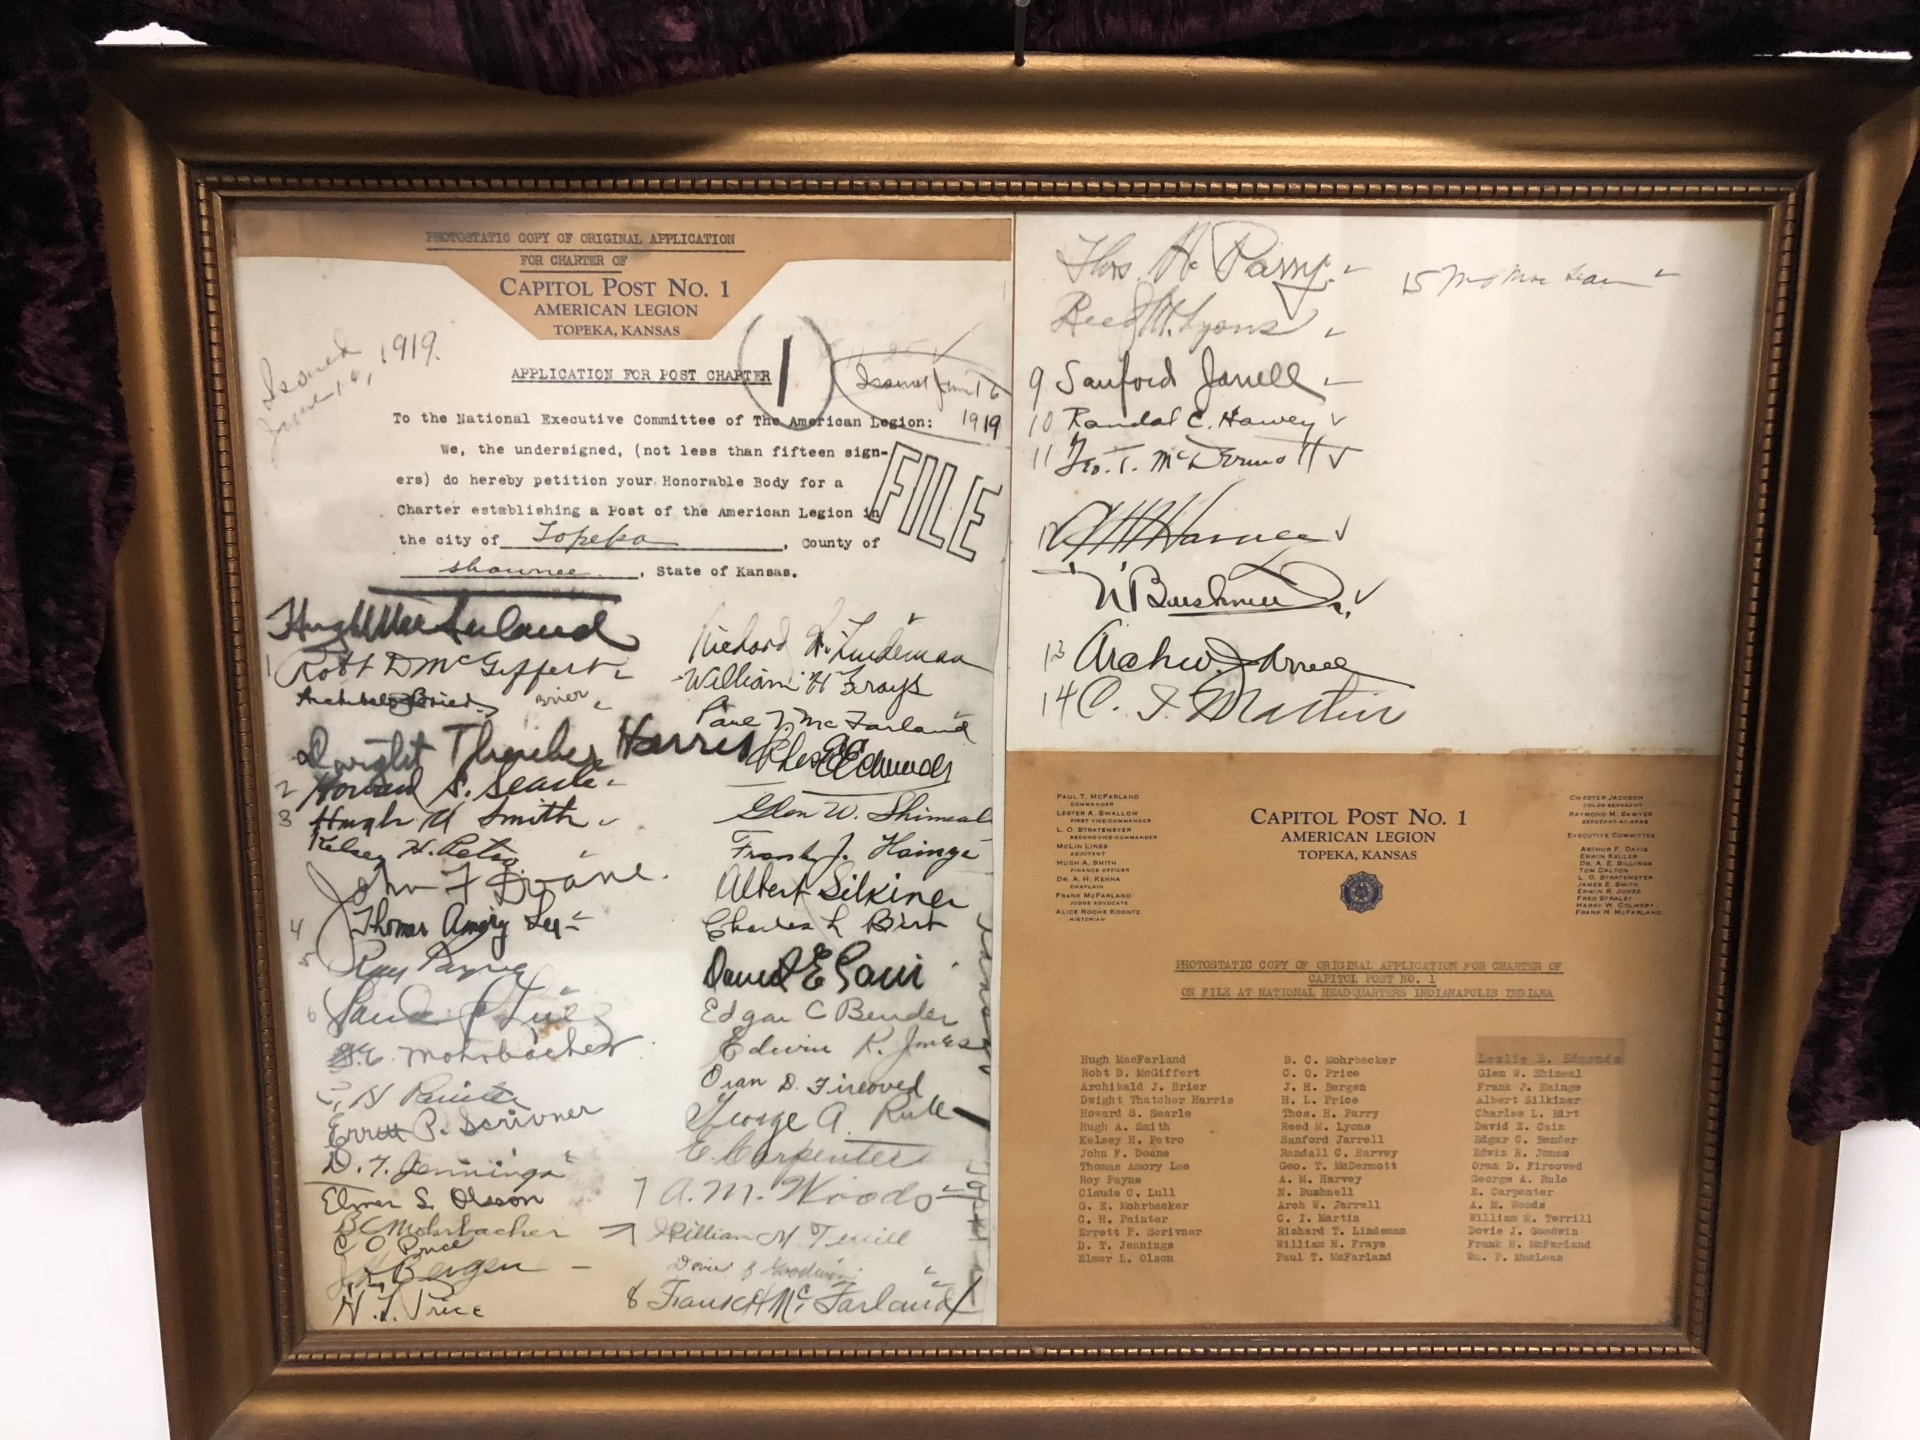 PHOTOSTATIC COPY OF ORIGINAL APPLICATION
FOR CHARTER OF
CAPITOL POST NO. 1
AMERICAN LEGION
TOPEKA, KANSAS
Issued
June 16, 1919.
APPLICATION FOR POST CHARTER
1
Issued June 16
1919
To the National Executive Committee of The American Legion:
We, the undersigned, (not less than fifteen sign-
ers) do hereby petition your Honorable Body for a
Charter establishing a Post of the American Legion in
the city of Topeka, County of
Shawnee, State of Kansas.
FILE
Hugh MacFarland
1 Robt D McGiffert
Archibald Brier
Brier
Dwight Thacher Harris
2 Howard S. Searle
3 Hugh A Smith
Kelsey H. Petro
John F Doane.
4 Thomas Amory Lee
5 Roy Payne
6
G. E. Mohrbacher
C. H. Painter
Errett P. Scrivner
D. T. Jennings
Elmer L. Olsson
B C Mohrbacher
C O Price
J H Bergen
H. L. Price
Richard H. Lindeman
William H Frays
Paul T McFarland
Edmunds
Glen W. Shimeal
Frank J. Hainge
Albert Silkiner
Charles L Birt
David E Cain
Edgar C Bender
Edwin R. Jones
Oran D. Fireoved
George A. Rule
E. Carpenter
7 A. M. Woods
William M Terrill
Dovie J Goodwin
8 Frank H McFarland
Thos. H. Parry
Reed M. Lyons
9 Sanford Jarrell
10 Randal C. Harvey
11 Geo. T. McDermott
12 A M Harvey
N Bushnell
13 Arch W. Jarrell
14 C. I. Martin
15 Wm P MacLean
PAUL T. MCFARLAND
COMMANDER
LESTER A. SWALLOW
FIRST VICE-COMMANDER
L. O. STRATEMEYER
SECOND VICE-COMMANDER
MCLIN LINES
ADJUTANT
HUGH A. SMITH
FINANCE OFFICER
DR. A. H. KENNA
CHAPLAIN
FRANK MCFARLAND
JUDGE ADVOCATE
ALICE ROCHE KOONTZ
HISTORIAN
CAPITOL POST NO. 1
AMERICAN LEGION
TOPEKA, KANSAS
CHESTER JACKSON
COLOR SERGEANT
RAYMOND M. SAWYER
SERGEANT-AT-ARMS
EXECUTIVE COMMITTEE
ARTHUR F. DAVIS
ERWIN KELLER
DR. A. E. BILLINGS
TOM DALTON
L. O. STRATEMEYER
JAMES E. SMITH
ERWIN R. JONES
FRED STRALEY
HARRY W. COLMERY
FRANK H. MCFARLAND
PHOTOSTATIC COPY OF ORIGINAL APPLICATION FOR CHARTER OF
CAPITOL POST NO. 1
ON FILE AT NATIONAL HEADQUARTERS INDIANAPOLIS INDIANA
Hugh MacFarland
Robt D. McGiffert
Archibald J. Brier
Dwight Thatcher Harris
Howard S. Searle
Hugh A. Smith
Kelsey H. Petro
John F. Doane
Thomas Amory Lee
Roy Payne
Claude C. Lull
G. E. Mohrbacker
C. H. Painter
Errett P. Scrivner
D. T. Jennings
Elmer L. Olson
B. C. Mohrbacker
C. O. Price
J. H. Bergen
H. L. Price
Thos. H. Parry
Reed M. Lyons
Sanford Jarrell
Randall C. Harvey
Geo. T. McDermott
A. M. Harvey
N. Bushnell
Arch W. Jarrell
C. I. Martin
Richard T. Lindeman
William H. Frays
Paul T. McFarland
Leslie E. Edmonds
Glen W. Shimeal
Frank J. Hainge
Albert Silkiner
Charles L. Birt
David E. Cain
Edgar C. Bender
Edwin R. Jones
Oran D. Fireoved
George A. Rule
E. Carpenter
A. M. Woods
William M. Terrill
Dovie J. Goodwin
Frank H. McFarland
Wm. P. MacLean